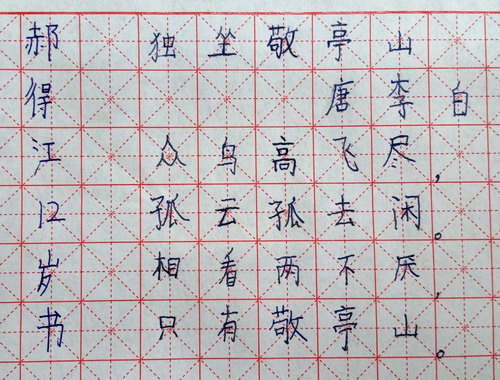 独坐敬亭山
唐李白
众鸟高飞尽，
孤云孤去闲。
相看两不厌，
只有敬亭山。
郝得江12岁书